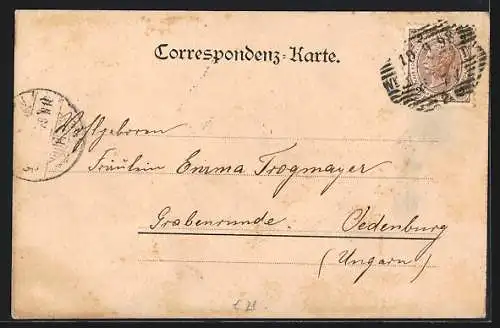 Correspondenz-Karte.
Wohlgeboren
Fräulein Emma Trogmayer
Grabenrunde. Oedenburg
(Ungarn)